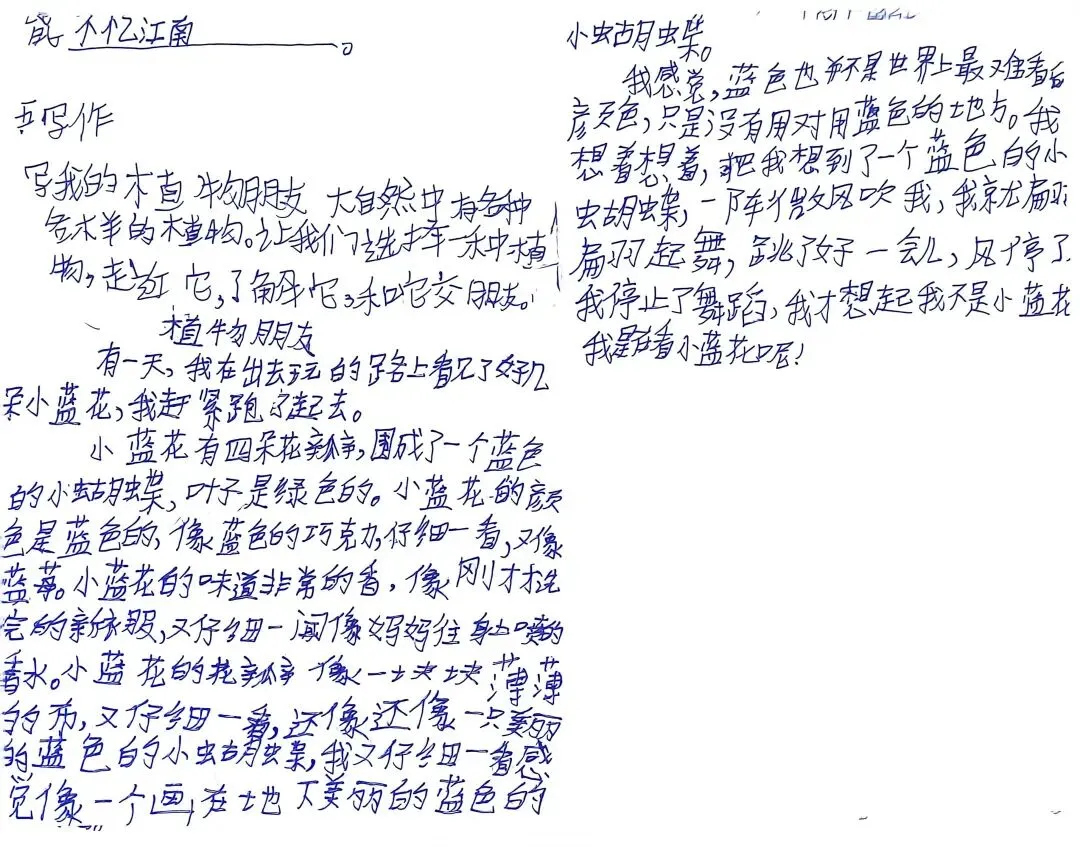 能不忆江南。
五写作
写我的植物朋友 大自然中有各种
各样的植物。让我们选择一种植
物,走近它,了解它,和它交朋友。
植物朋友
有一天,我在出去玩的路上看见了好几
朵小蓝花,我赶紧跑了起去。
小蓝花有四朵花瓣,围成了一个蓝色
的小蝴蝶,叶子是绿色的。小蓝花的颜
色是蓝色的,像蓝色的巧克力,仔细一看,又像
蓝莓。小蓝花的味道非常的香,像刚才洗
完的新衣服,又仔细一闻像妈妈往身上喷的
香水。小蓝花的花瓣像一块块薄薄
的布,又仔细一看,还像还像一只美丽
的蓝色的小蝴蝶,我又仔细一看感
觉像一个画在地下美丽的蓝色的
小蝴蝶。
我感觉,蓝色也并不是世界上最难看的
颜色,只是没有用对用蓝色的地方。我
想着想着,把我想到了一个蓝色的小
蝴蝶,一阵微风吹我,我就翩
翩起舞,跳了好一会儿,风停了
我停止了舞蹈,我才想起我不是小蓝花
我是在看小蓝花呢!